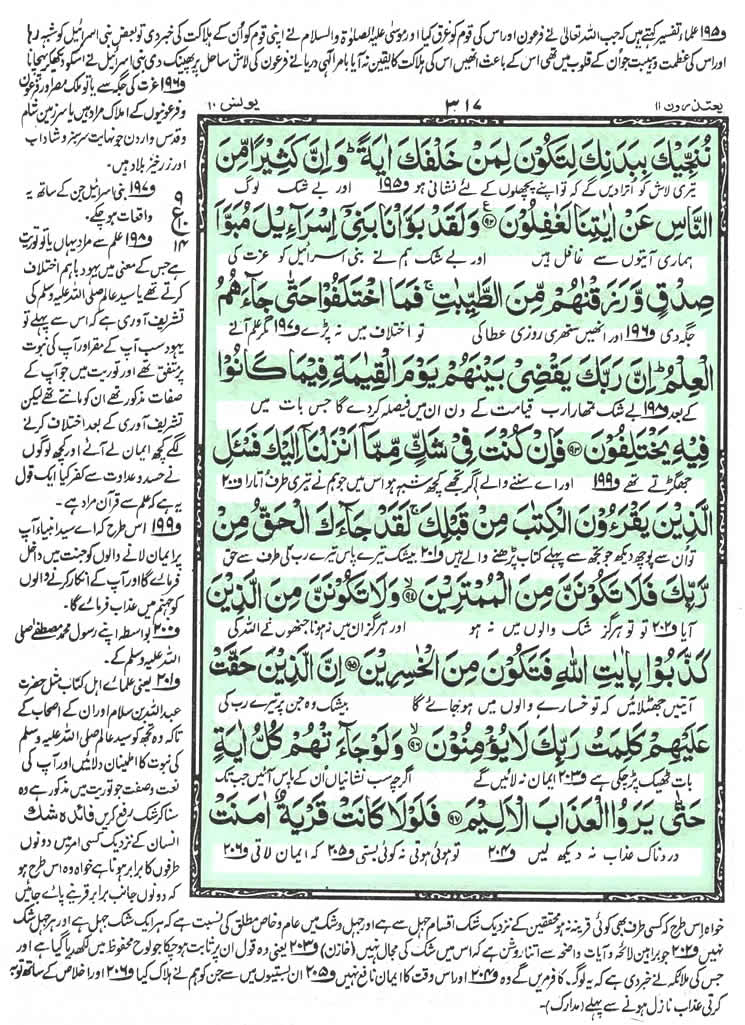 و۱۹۵ علماء تفسیر کہتے ہیں کہ جب اللہ تعالیٰ نے فرعون اور اس کی قوم کو غرق کیا اور موسیٰ علیہ الصلوٰۃ والسلام نے اپنی قوم کو اُن کے ہلاکت کی خبر دی تو بعض بنی اسرائیل کو شبہہ رہا
اور اس کی عظمت و ہیبت جو اُن کے قلوب میں تھی اس کے باعث انھیں اس کی ہلاکت کا یقین نہ آیا بامرِ الٰہی دریا نے فرعون کی لاش ساحل پر پھینک دی بنی اسرائیل نے اسکو دیکھ کر پہچانا
یعتذرون ۱۱
۳۱۷
یونس ۱۰
نُنَجِّيۡكَ بِبَدَنِكَ لِتَكُوۡنَ لِمَنۡ خَلۡفَكَ اٰيَةً ؕ وَاِنَّ كَثِيۡرًا مِّنَ
تیری لاش کو اترا دیں گے کہ تو اپنے پچھلوں کے لئے نشانی ہو و۱۹۵ اور بے شک لوگ
النَّاسِ عَنۡ اٰيٰتِنَا لَغٰفِلُوۡنَ ﴿۹۲﴾ وَلَقَدۡ بَوَّاۡنَا بَنِىۡۤ اِسۡرَآءِيۡلَ مُبَوَّاَ
ہماری آیتوں سے غافل ہیں اور بے شک ہم نے بنی اسرائیل کو عزت کی
صِدۡقٍ وَّرَزَقۡنٰهُمۡ مِّنَ الطَّيِّبٰتِ ۚ فَمَا اخۡتَلَفُوۡا حَتّٰى جَآءَهُمُ
جگہ دی و۱۹۶ اور انھیں ستھری روزی عطا کی تو اختلاف میں نہ پڑے و۱۹۷ مگر علم آنے
الۡعِلۡمُ ؕ اِنَّ رَبَّكَ يَقۡضِىۡ بَيۡنَهُمۡ يَوۡمَ الۡقِيٰمَةِ فِيۡمَا كَانُوۡا
کے بعد و۱۹۸ بے شک تمھارا رب قیامت کے دن ان میں فیصلہ کردے گا جس بات میں
فِيۡهِ يَخۡتَلِفُوۡنَ ﴿۹۳﴾ فَاِنۡ كُنۡتَ فِىۡ شَكٍّ مِّمَّاۤ اَنۡزَلۡنَاۤ اِلَيۡكَ فَسۡـَٔلِ
جھگڑتے تھے و۱۹۹ اور اے سننے والے اگر تجھے کچھ شبہہ ہو اس میں جو ہم نے تیری طرف اتارا و۲۰۰
الَّذِيۡنَ يَقۡرَءُوۡنَ الۡكِتٰبَ مِنۡ قَبۡلِكَ ۚ لَقَدۡ جَآءَكَ الۡحَقُّ مِنۡ
تو اُن سے پوچھ دیکھ جو تجھ سے پہلے کتاب پڑھنے والے ہیں و۲۰۱ بیشک تیرے پاس تیرے رب کی طرف سے حق
رَّبِّكَ فَلَا تَكُوۡنَنَّ مِنَ الۡمُمۡتَرِيۡنَ ﴿۹۴﴾ وَلَا تَكُوۡنَنَّ مِنَ الَّذِيۡنَ
آیا و۲۰۲ تو تو ہرگز شک والوں میں نہ ہو اور ہرگز ان میں نہ ہونا جنھوں نے اللہ کی
كَذَّبُوۡا بِاٰيٰتِ اللّٰهِ فَتَكُوۡنَ مِنَ الۡخٰسِرِيۡنَ ﴿۹۵﴾ اِنَّ الَّذِيۡنَ حَقَّتۡ
آیتیں جھٹلائیں کہ تو خسارے والوں میں ہوجائے گا بیشک وہ جن پر تیرے رب کی
عَلَيۡهِمۡ كَلِمَتُ رَبِّكَ لَا يُؤۡمِنُوۡنَ ﴿۹۶﴾ وَلَوۡ جَآءَتۡهُمۡ كُلُّ اٰيَةٍ
بات ٹھیک پڑ چکی ہے و۲۰۳ ایمان نہ لائیں گے اگرچہ سب نشانیاں اُن کے پاس آئیں جب تک
حَتّٰى يَرَوُا الۡعَذَابَ الۡاَلِيۡمَ ﴿۹۷﴾ فَلَوۡلَا كَانَتۡ قَرۡيَةٌ اٰمَنَتۡ
دردناک عذاب نہ دیکھ لیں و۲۰۴ تو ہوئی ہوتی نہ کوئی بستی و۲۰۵ کہ ایمان لاتی و۲۰۶
و۱۹۶ عزت کی جگہ سے یا تو ملک مصر اور فرعون
و فرعونیوں کے املاک مراد ہیں یا سرزمین شام
و قدس و اردن جو نہایت سرسبز و شاداب
اور زرخیز بلاد ہیں۔
و۱۹۷ بنی اسرائیل جن کے ساتھ یہ
واقعات ہو چکے۔
۹
ع
۱۰
۱۴
و۱۹۸ علم سے مراد یہاں یا تو توریت
ہے جس کے معنی میں یہود باہم اختلاف
کرتے تھے یا سید عالم صلی اللہ علیہ وسلم کی
تشریف آوری ہے کہ اس سے پہلے تو
یہود سب آپ کے مقر اور آپ کی نبوت
پر متفق تھے اور توریت میں جو آپ کے
صفات مذکور تھے ان کو مانتے تھے لیکن
تشریف آوری کے بعد اختلاف کرنے
لگے کچھ ایمان لے آئے اور کچھ لوگوں
نے حسد و عداوت سے کفر کیا ایک قول
یہ ہے کہ علم سے قرآن مراد ہے۔
و۱۹۹ اس طرح کہ اے سید انبیاء آپ
پر ایمان لانے والوں کو جنت میں داخل
فرمائے گا اور آپ کے انکار کرنے والوں
کو جہنم میں عذاب فرمائے گا۔
و۲۰۰ بواسطہ اپنے رسول محمد مصطفےٰ صلی
اللہ علیہ وسلم کے۔
و۲۰۱ یعنی علمائے اہل کتاب مثل حضرت
عبداللہ بن سلام اور ان کے اصحاب کے
تاکہ وہ تجھ کو سید عالم صلی اللہ علیہ وسلم
کی نبوت کا اطمینان دلائیں اور آپ کی
نعت و صفت جو توریت میں مذکور ہے وہ
سناکر شک رفع کریں فائدہ شک
انسان کے نزدیک کسی امر میں دونوں
طرفوں کا برابر ہونا ہے خواہ وہ اس طرح ہو
کہ دونوں جانب برابر قرینے پائے جائیں
خواہ اس طرح کہ کسی طرف بھی کوئی قرینہ نہ ہو محققین کے نزدیک شک اقسام جہل سے ہے اور جہل و شک میں عام و خاص مطلق کی نسبت ہے کہ ہر ایک شک جہل ہے اور ہر جہل شک
نہیں و۲۰۲ جو براہین لائحہ و آیات واضحہ سے اتنا روشن ہے کہ اس میں شک کی مجال نہیں (خازن) و۲۰۳ یعنی وہ قول ان پر ثابت ہو چکا جو لوح محفوظ میں لکھ دیا گیا ہے اور
جس کی ملائکہ نے خبر دی ہے کہ یہ لوگ کافر مریں گے وہ و۲۰۴ اور اس وقت کا ایمان نافع نہیں و۲۰۵ ان بستیوں میں سے جن کو ہم نے ہلاک کیا و۲۰۶ اور اخلاص کے ساتھ توبہ
کرتی عذاب نازل ہونے سے پہلے (مدارک)۔